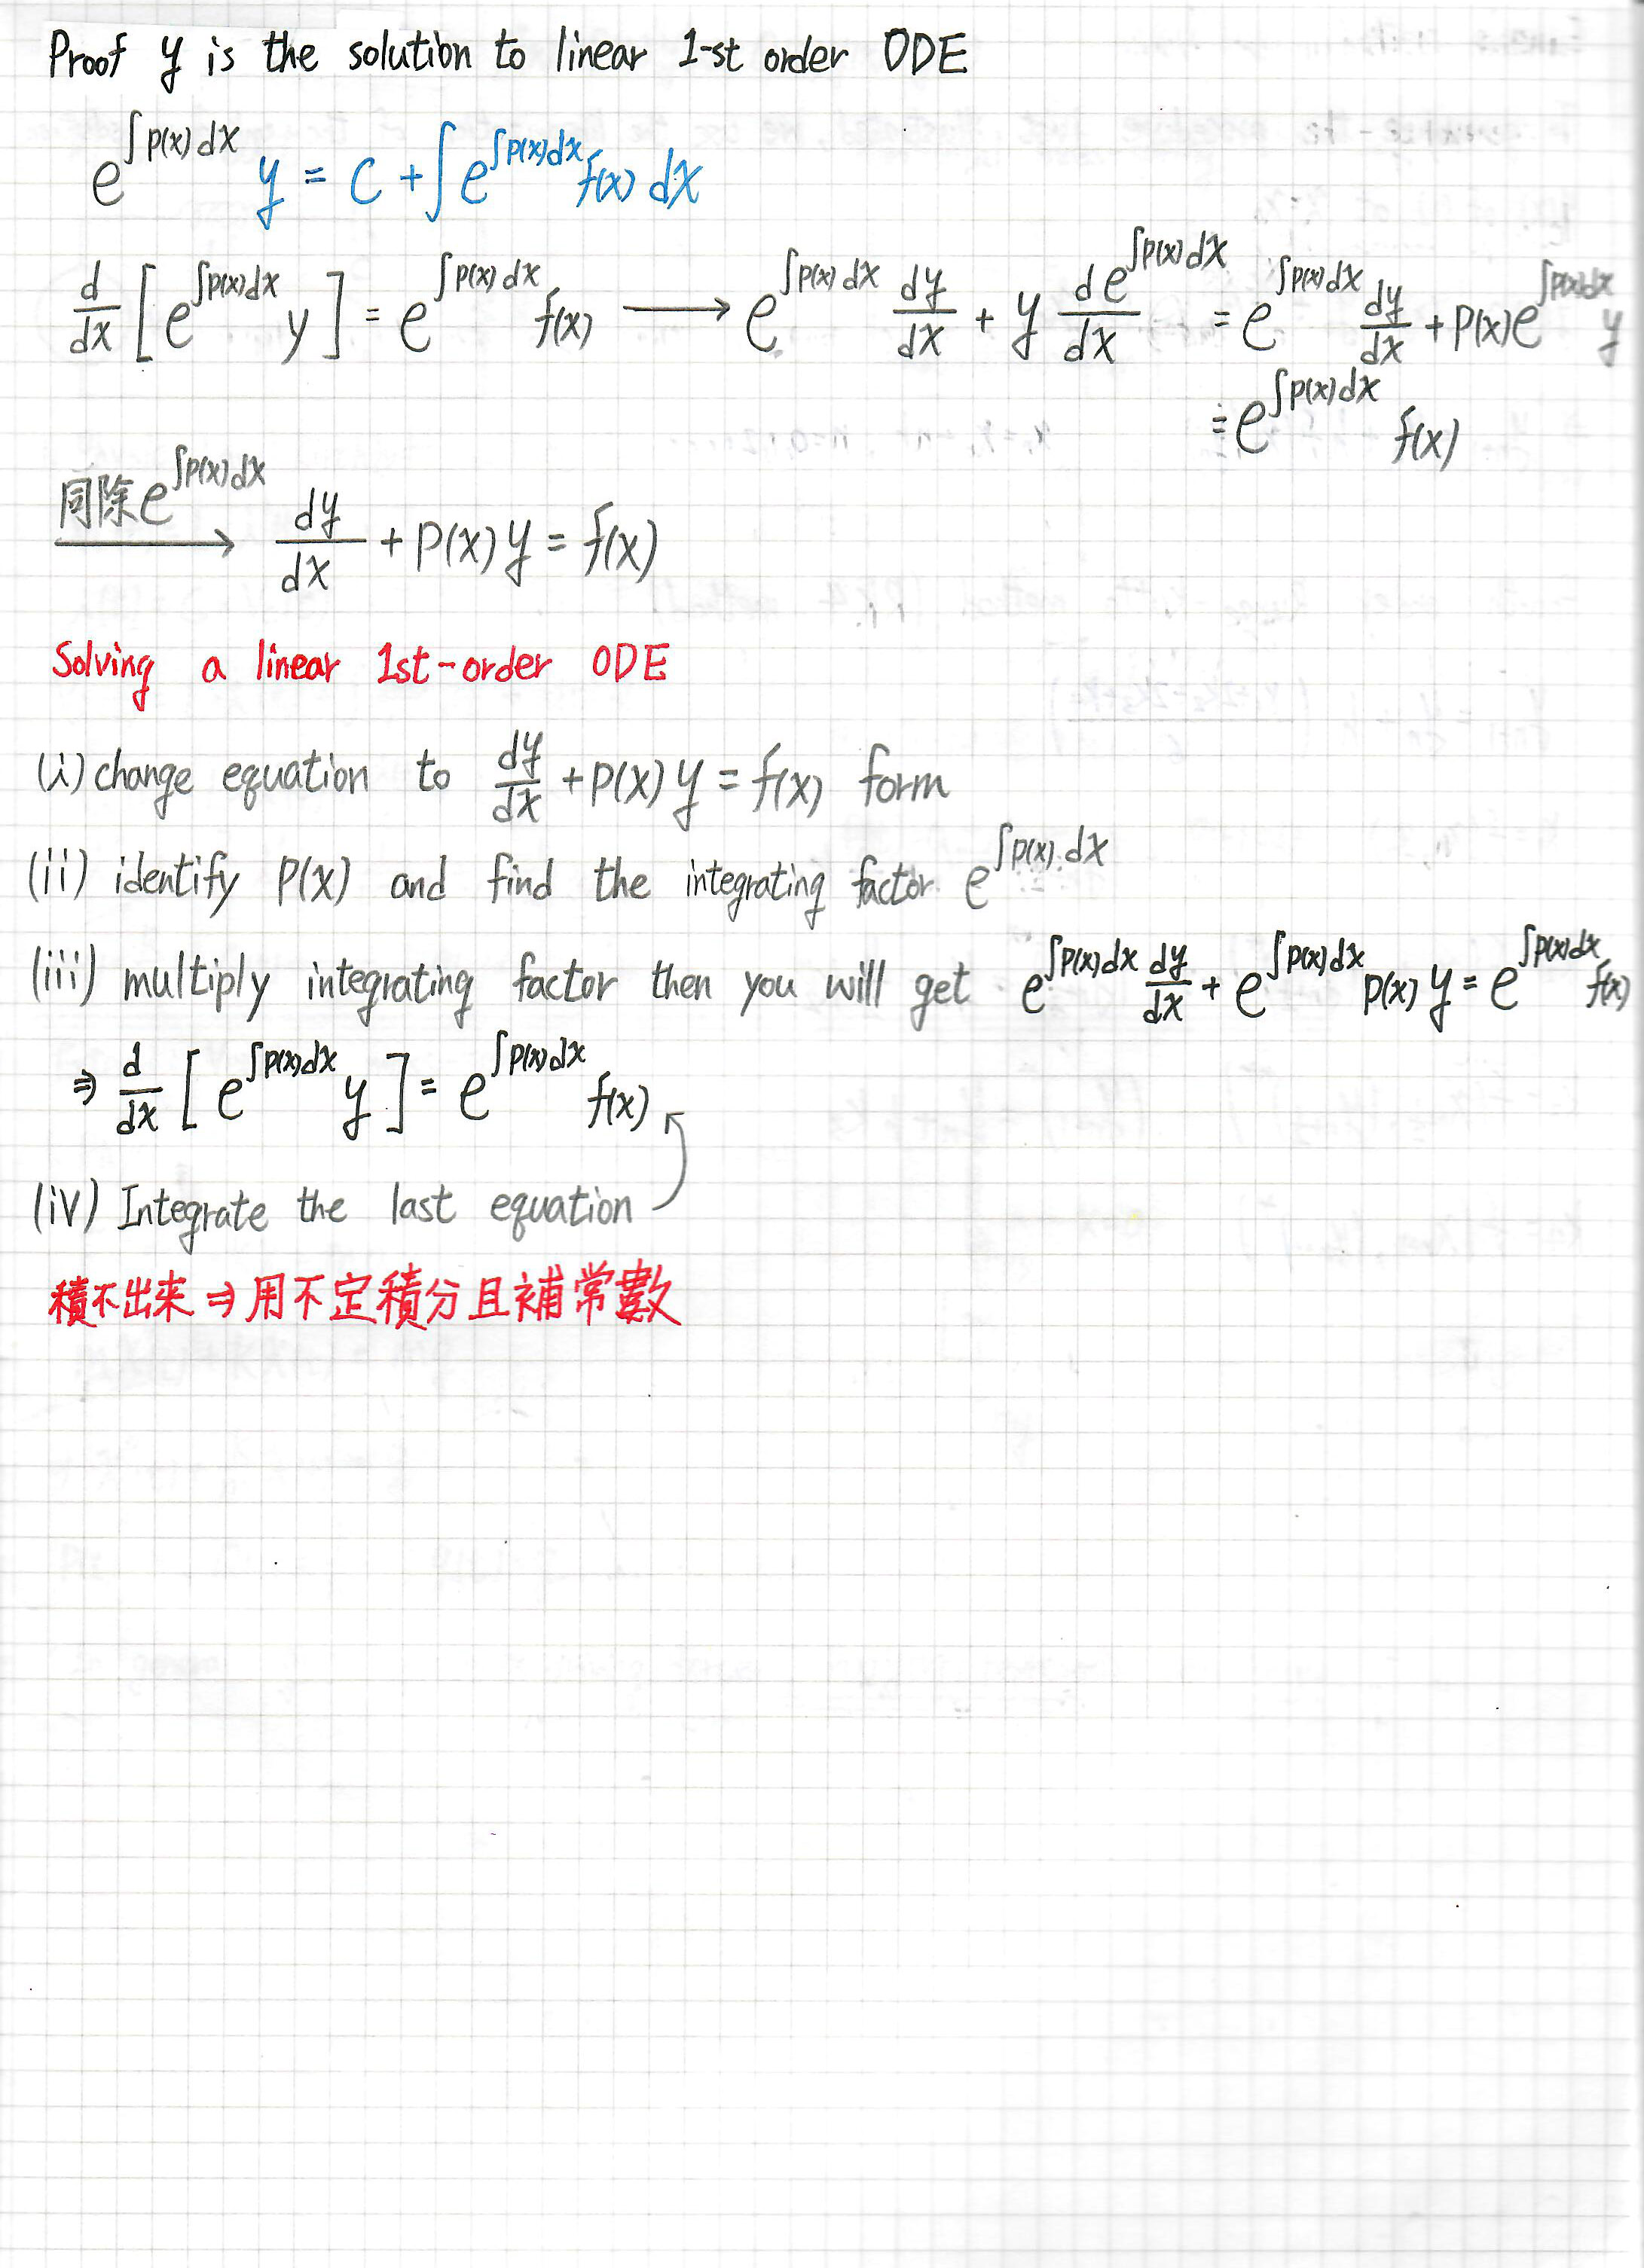 Proof y is the solution to linear 1-st order ODE
e^{∫P(x)dx} y = C + ∫e^{∫P(x)dx} f(x) dx
d/dx [e^{∫P(x)dx} y] = e^{∫P(x)dx} f(x) ⟶ e^{∫P(x)dx} dy/dx + y de^{∫P(x)dx}/dx = e^{∫P(x)dx} dy/dx + P(x)e^{∫P(x)dx} y
= e^{∫P(x)dx} f(x)
同除e^{∫P(x)dx} ⟶ dy/dx + P(x)y = f(x)
Solving a linear 1st-order ODE
(i) change equation to dy/dx + P(x)y = f(x) form
(ii) identify P(x) and find the integrating factor e^{∫P(x)dx}
(iii) multiply integrating factor then you will get e^{∫P(x)dx} dy/dx + e^{∫P(x)dx} P(x)y = e^{∫P(x)dx} f(x)
⇒ d/dx [e^{∫P(x)dx} y] = e^{∫P(x)dx} f(x)
(iv) Integrate the last equation
積不出来 ⇒ 用不定積分且補常數